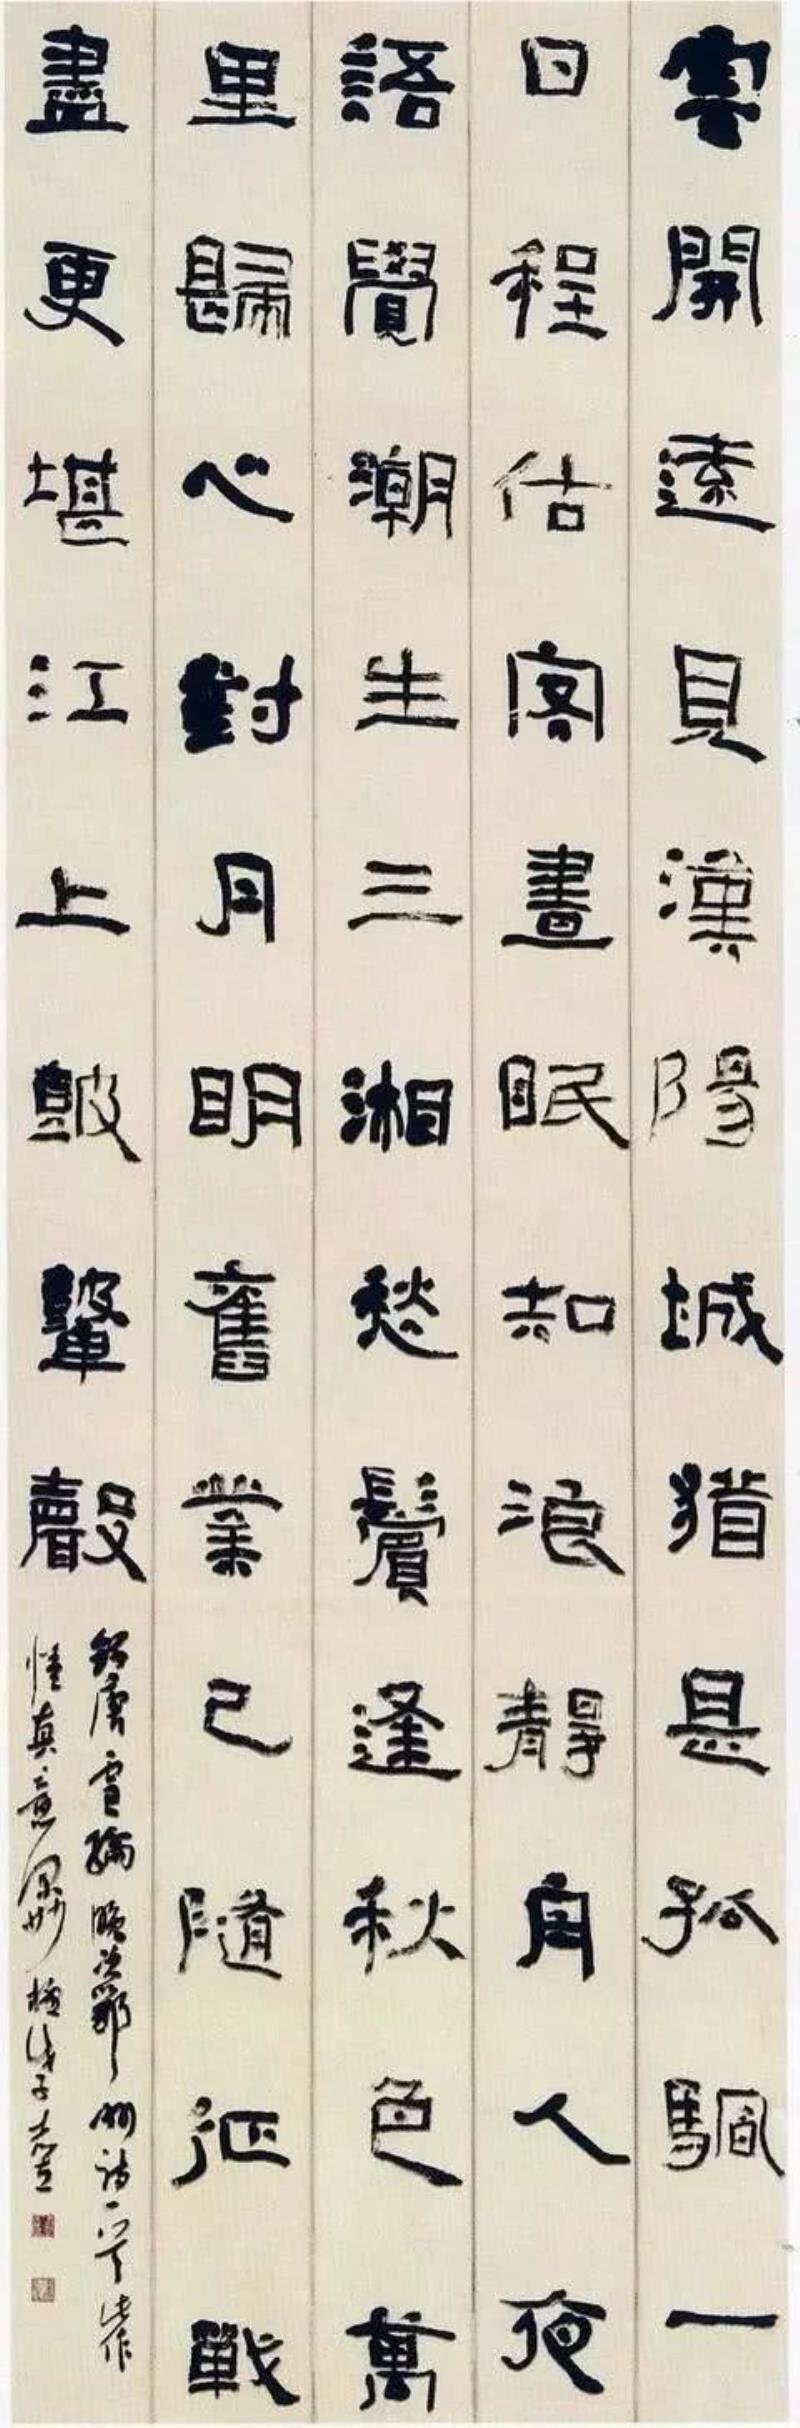 雲開遠見漢陽城猶是孤颿一
日程估客晝眠知浪靜舟人夜
語覺潮生三湘愁鬢逢秋色萬
里歸心對月明舊業已隨征戰
盡更堪江上鼓鼙聲
錄唐盧綸晚次鄂州詩一首此作
真意戊子